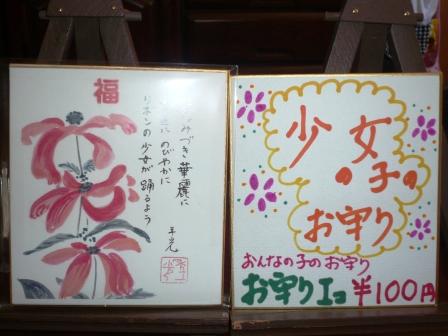 福
みづき華麗に
のびやかに
リボンの少女が踊るよう
少女
の子の
お守り
おんなの子のお守り
お守り1コ ¥100円